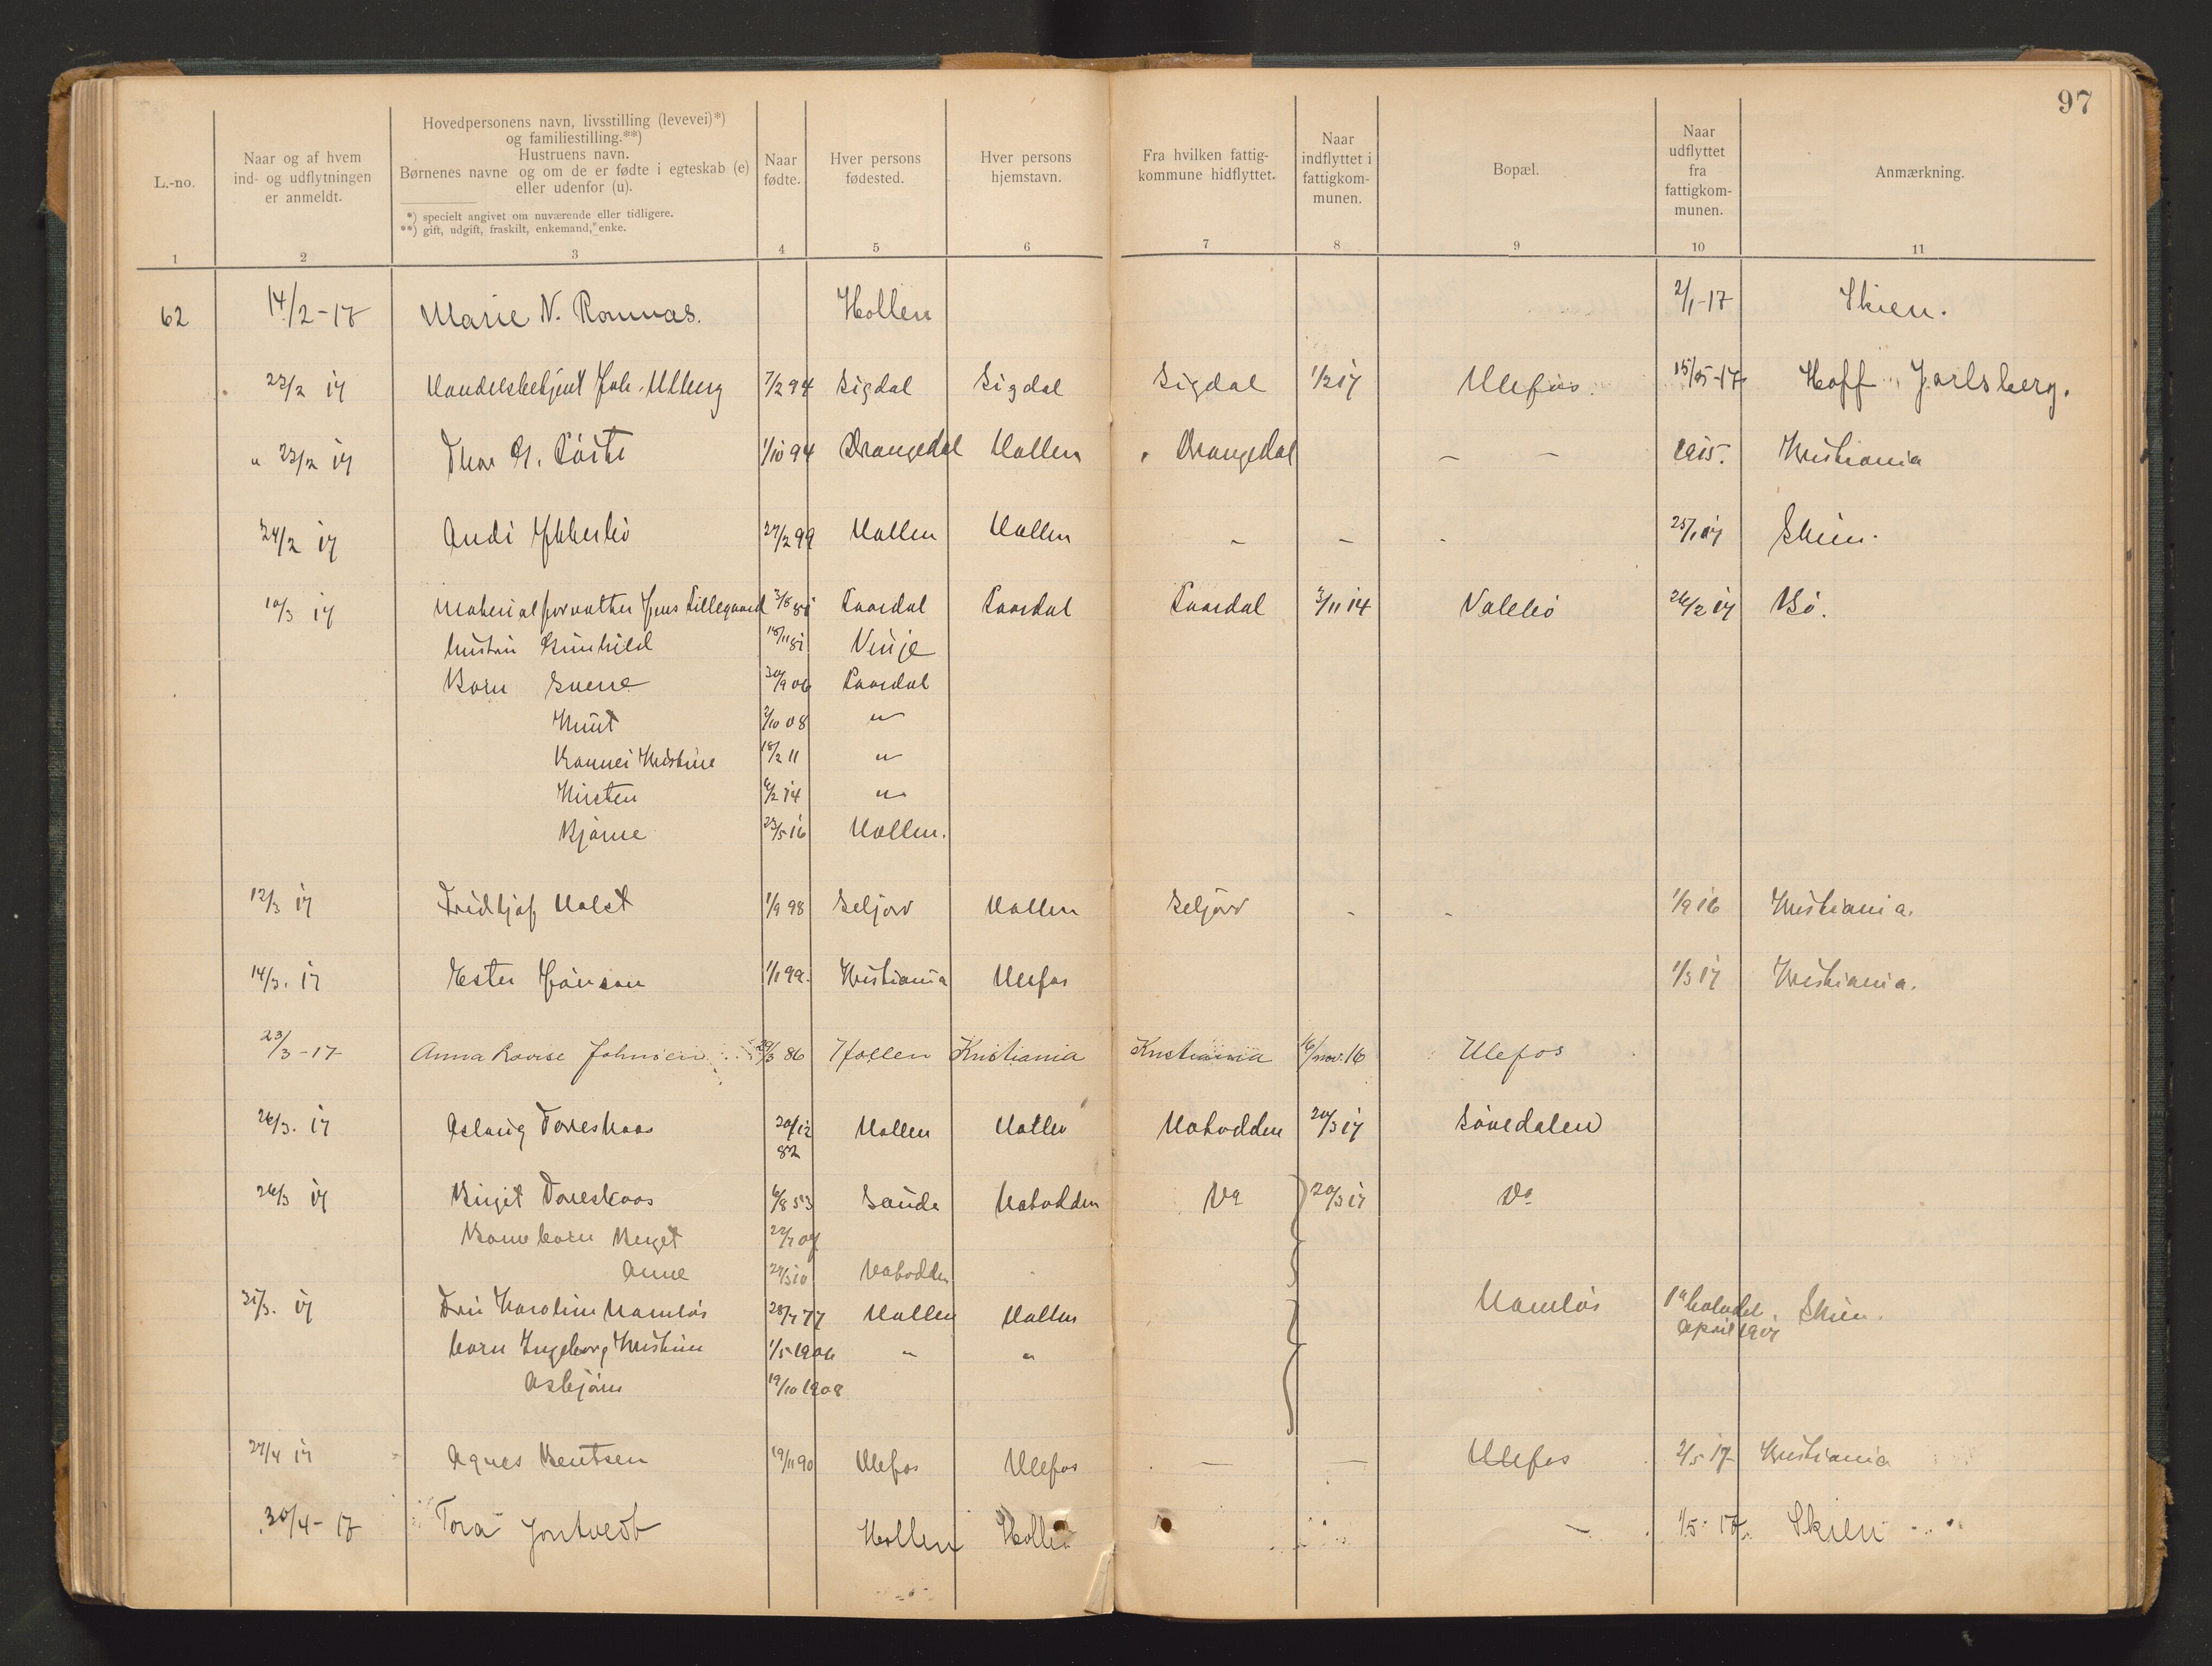 97
L.-no.
Naar og af hvem
ind- og udflytningen
er anmeldt.
Hovedpersonens navn, livsstilling (levevei)*)
og familiestilling.**)
Hustruens navn.
Børnenes navne og om de er fødte i egteskab (e)
eller udenfor (u).
*) specielt angivet om nuværende eller tidligere.
**) gift, udgift, fraskilt, enkemand, enke.
Naar
fødte.
Hver persons
fødested.
Hver persons
hjemstavn.
Fra hvilken fattig-
kommune hidflyttet.
Naar
indflyttet i
fattigkom-
munen.
Bopæl.
Naar
udflyttet
fra
fattigkom-
munen.
Anmærkning.
1 2 3 4 5 6 7 8 9 10 11
62 14/2-17 Marie N. Romnas. Hollen 2/1-17 Skien.
23/2 17 Handelsbetjent Joh. Ulberg 7/2 94 Sigdal Sigdal Sigdal 1/2 17 Ulefos. 15/5-17 Hoff Jarlsberg.
" 23/2 17 Thor G. 1/10 94 Drangedal Hollen Drangedal - - 1915. Kristiania
24/2 17 Andi 27/2 99 Hollen Hollen - - - 25/1 17 Skien.
10/3 17 Materialforvalter Jens Lillegaard Laardal Laardal Laardal 3/11 14 Valebø 26/2 17 Bø.
hustru Gunhild 18/11 81 Vinje
Børn Sverre 30/9 06 Laardal
Knut 2/10 08 "
Rannei Kristine 18/2 11 "
Kirsten 6/2 14 "
Bjarne 23/5 16 Hollen.
12/3 17 Fridtjof Holst 1/9 98 Seljord Hollen Seljord - - 1/9 16 Kristiania.
14/3. 17 Ester Jonson 1/1 99. Kristiania Ulefos 1/3 17 Kristiania.
23/3-17 Anna Lovise Johnsen 86 Hollen Kristiania Kristiania 16/nov. 16 Ulefos
26/3. 17 Aslaug Toreskaas 20/12 82 Hollen Hollen Notodden 20/3 17 Sövedalen
26/3 17 Birgit Toreskaas 6/8 53 Saude Notodden Do 20/3 17 Do
Barnebarn Berget 22/7 07
Anne 27/3 10 Notodden
31/3. 17 Fru Karoline Namløs 28/7 77 Hollen Hollen Namløs 1a halvdel Skien.
april 1917
barn Ingeborg Kristine 1/5 1906 " "
Asbjörn 19/10 1908
27/4 17 Agnes Bentsen 19/11 90 Ulefos Ulefos - - Ulefos 2/5 17 Kristiania
30/4-17 Tora Jontvedt Hollen Hollen - 1/5-17. Skien